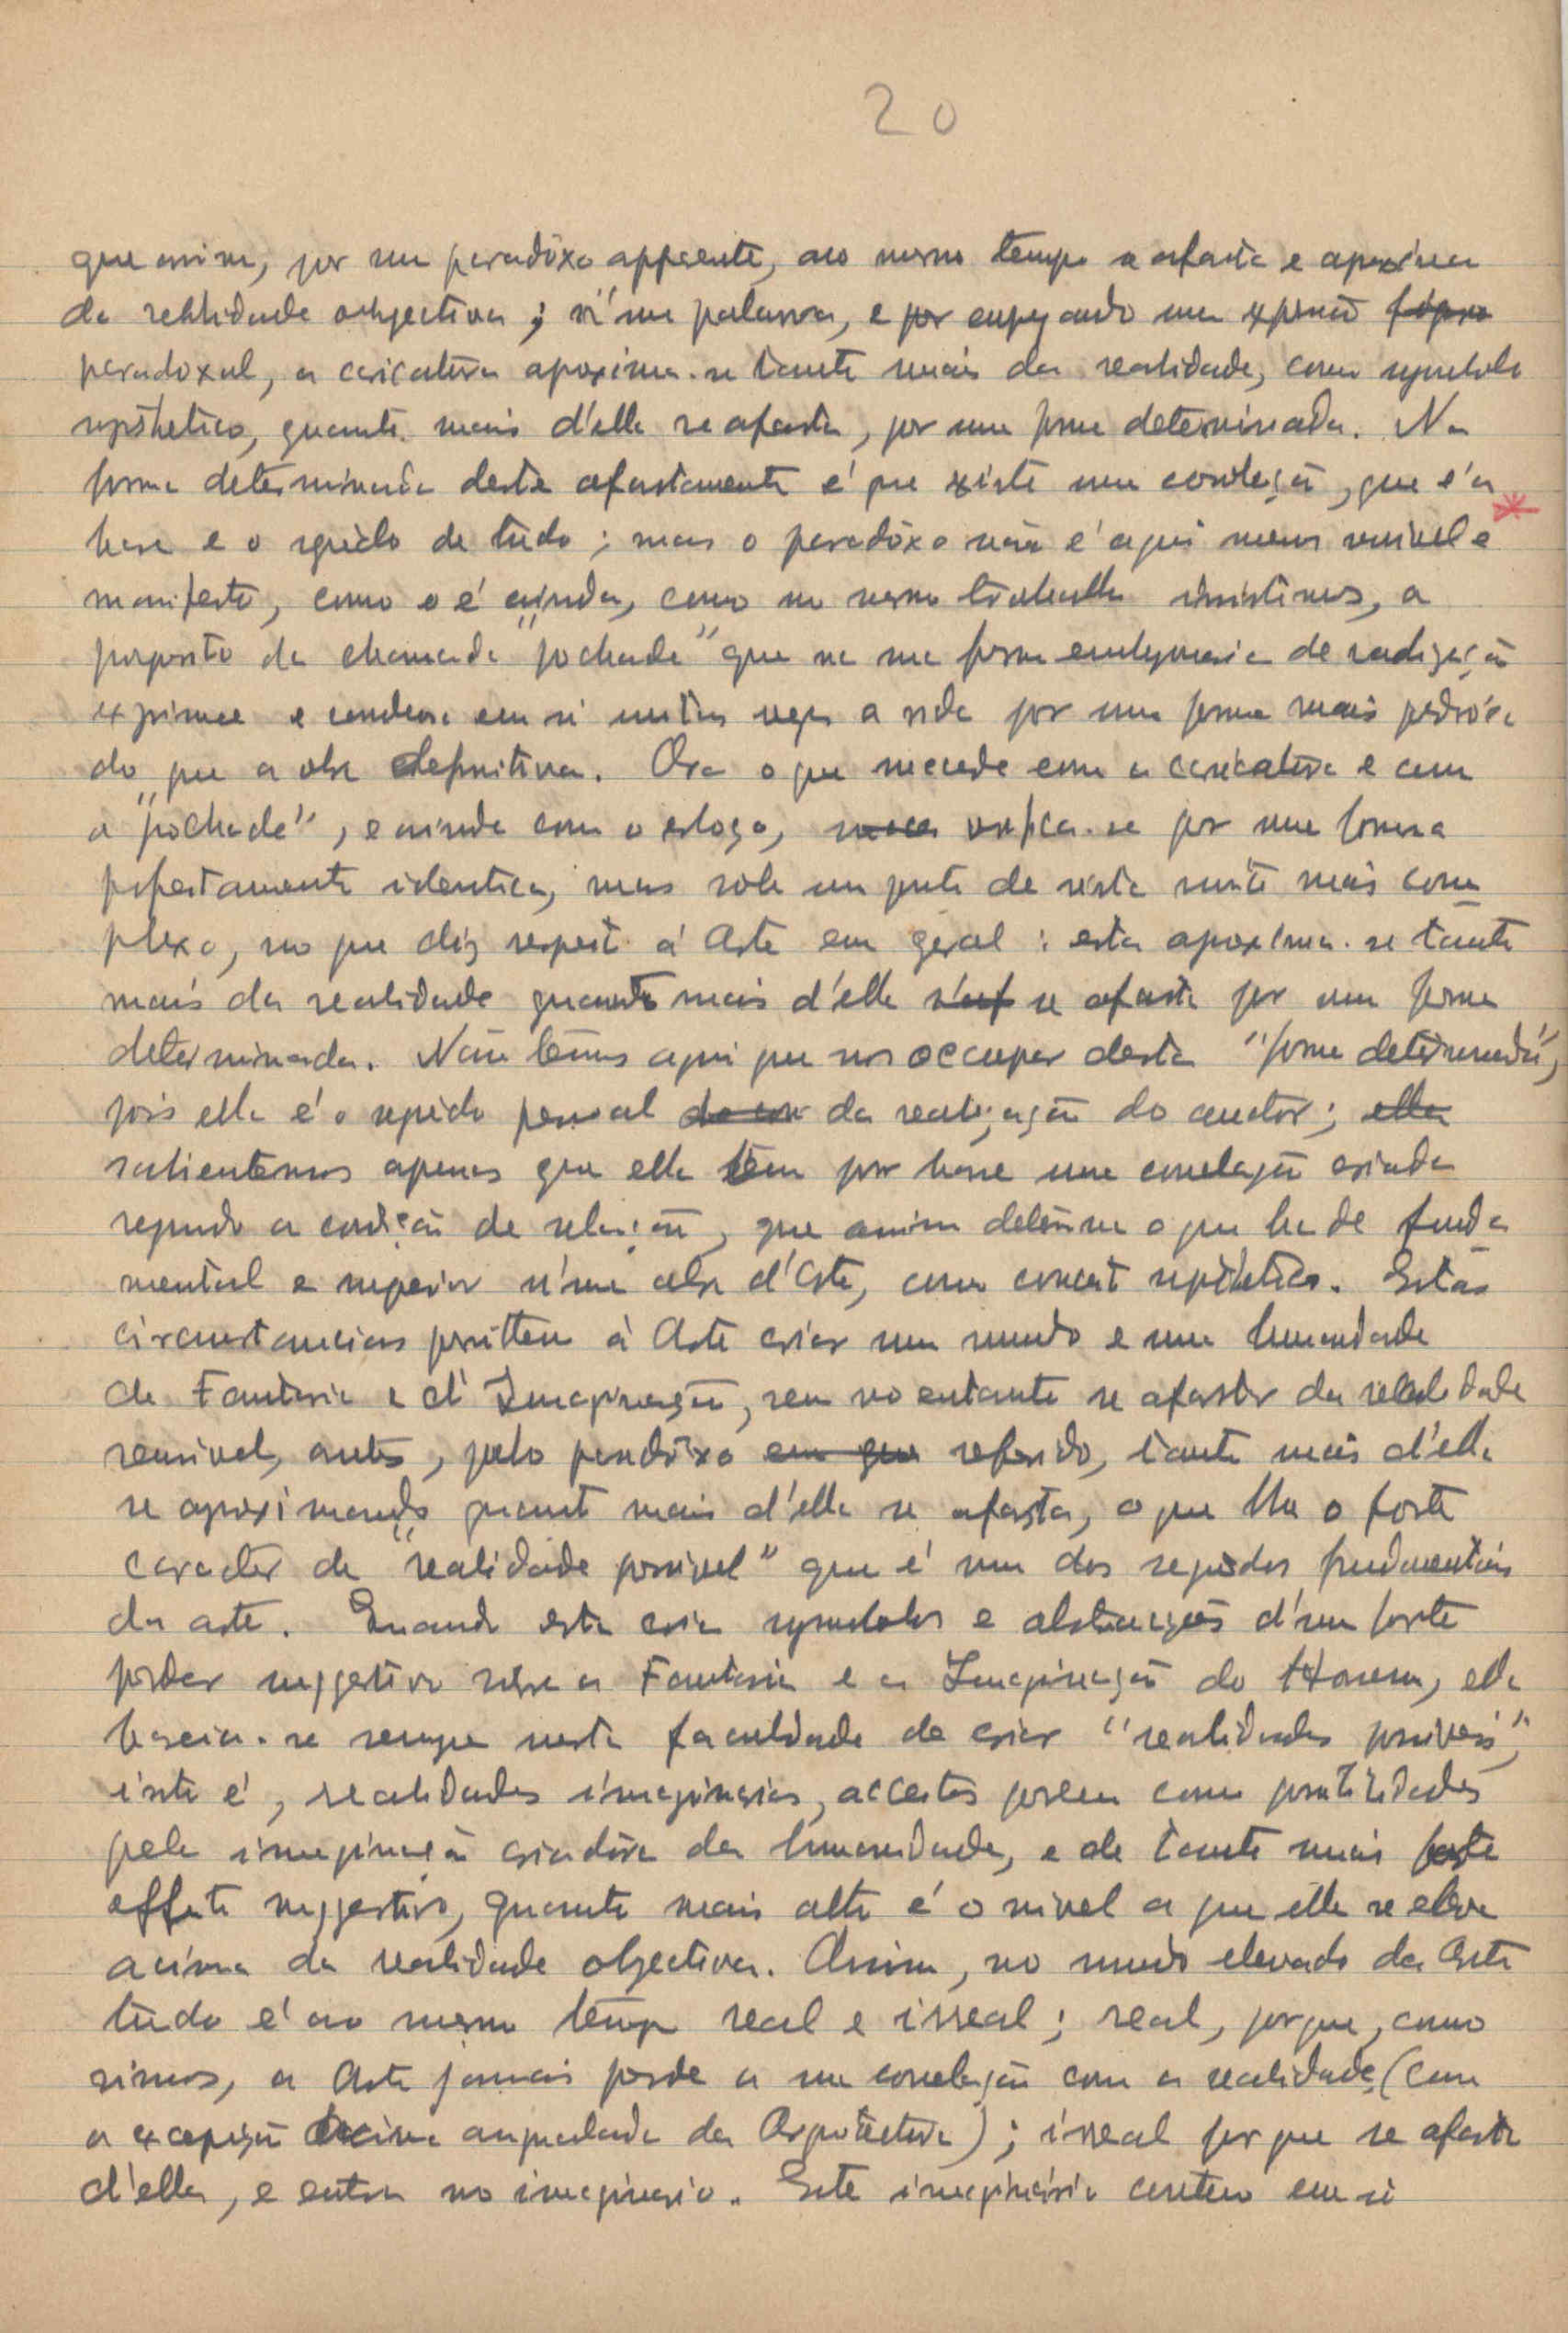 20
que assim, por um paradôxo apparente, ao mesmo tempo se afasta e aproxima
da realidade objectiva; n'uma palavra, e por empregando uma expressão
paradoxal, a caricatura aproxima-se tanto mais da realidade, como symbolo
synthetico, quanto mais d'ella se afasta, por uma forma determinada. Na
forma determinada deste afastamento é que existe uma correlação, que é a
base e o segrêdo de tudo; mas o paradôxo não é aqui menos sensivel e
manifesto, como o é ainda, como no mesmo trabalho insistimos, a
proposito da chamada "pochade" que na sua forma embryonaria de realização
exprime e condensa em si muitas vezes a vida por uma forma mais
do que a obra definitiva. Ora o que succede com a caricatura e com
a "pochade", e ainda com o esboço, verifica-se por uma forma
perfeitamente identica, mas sob um ponto de vista muito mais com
plexo, no que diz respeito á Arte em geral: esta aproxima-se tanto
mais da realidade quanto mais d'ella se afasta por uma forma
determinada. Não têmos aqui que nos occupar desta "forma determinada",
pois ella é o segrêdo pessoal da realização do auctor; ella
salientemos apenas que ella têm por base uma correlação criada
segundo a condição de relação, que assim determina o que ha de funda
mental e superior n'uma obra d'Arte, como conceito synthetico. Estas
circunstancias permittem á Arte criar um mundo e uma humanidade
de Fantasia e d'Imaginação, sem no entanto se afastar da realidade
sensivel, antes, pelo paradôxo em que referido, tanto mais d'ella
se aproximando quanto mais d'ella se afasta, o que lhe o forte
caracter de "realidade possivel" que é um dos segredos fundamentais
da arte. Quando esta cria symbolos e abstracções d'um forte
poder suggestivo sôbre a Fantasia e a Imaginação do Homem, ella
baseia-se sempre nesta faculdade de criar "realidades possiveis",
isto é, realidades imaginarias, acceites porem como possibilidades
pela imaginação criadôra da humanidade, e de tanto mais forte
effeito suggestivo, quanto mais alto é o nivel a que ella se eleva
acima da realidade objectiva. Assim, no mundo elevado da Arte
tudo é ao mesmo têmpo real e irreal; real, porque, como
vimos, a Arte jamais perde a sua correlação com a realidade, (com
a excepção acima assignalada da Arquitectura); irreal por que se afasta
d'ella, e entra no imaginario. Este imaginário contem em si